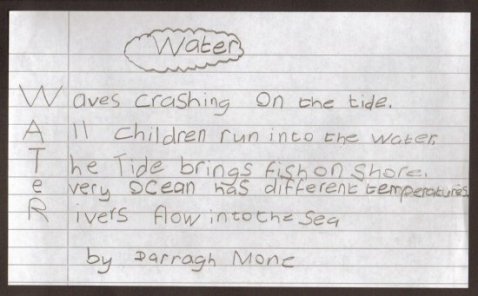 Water
Waves crashing on the tide.
All children run into the water
The Tide brings fish on shore.
every Ocean has different temperatures
Rivers flow into the Sea
by Darragh Mone